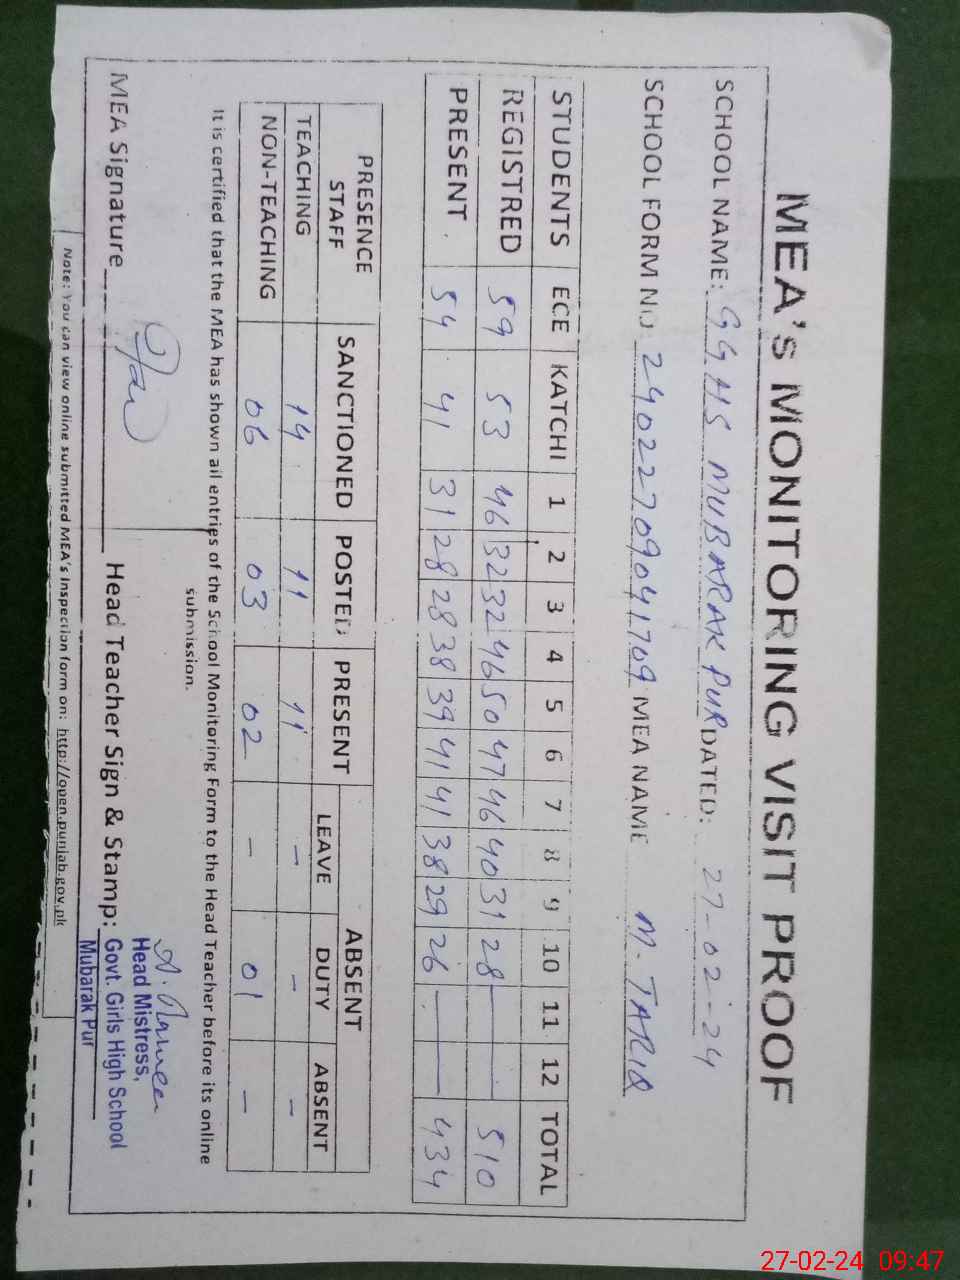 MEA's MONITORING VISIT PROOF
SCHOOL NAME: GGHS MUBARAK PUR DATED: 27-02-24
SCHOOL FORM NO 24022709041709 MEA NAME M. TARIQ
STUDENTS ECE KATCHI 1 2 3 4 5 6 7 8 9 10 11 12 TOTAL
REGISTRED 59 53 46 32 32 46 50 47 46 40 31 28 — — 510
PRESENT 54 41 31 28 28 38 39 41 41 38 29 26 — — 434
PRESENCE STAFF SANCTIONED POSTED PRESENT ABSENT
LEAVE DUTY ABSENT
TEACHING 14 11 11 – – –
NON-TEACHING 06 03 02 – 01 –
It is certified that the MEA has shown all entries of the School Monitoring Form to the Head Teacher before its online
submission.
MEA Signature Head Teacher Sign & Stamp:
Head Mistress,
Govt. Girls High School
Mubarak Pur
Note: You can view online submitted MEA's Inspection form on: http://open.punjab.gov.pk
27-02-24 09:47